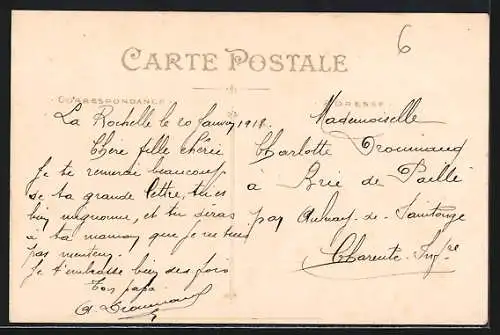 6
CARTE POSTALE
CORRESPONDANCE
ADRESSE
La Rochelle le 20 Janvier 1918.
Chère fille chérie
Je te remerci beaucoup
de ta grande lettre, tu es
bien mignonne, et tu diras
à ta maman que je ne suis
pas menteur.
Je t'embrasse bien des fois
Ton papa
Mademoiselle
Charlotte Drouinaud
à Brie de Paillé
par Aulnay-de-Saintonge
Charente-Infre